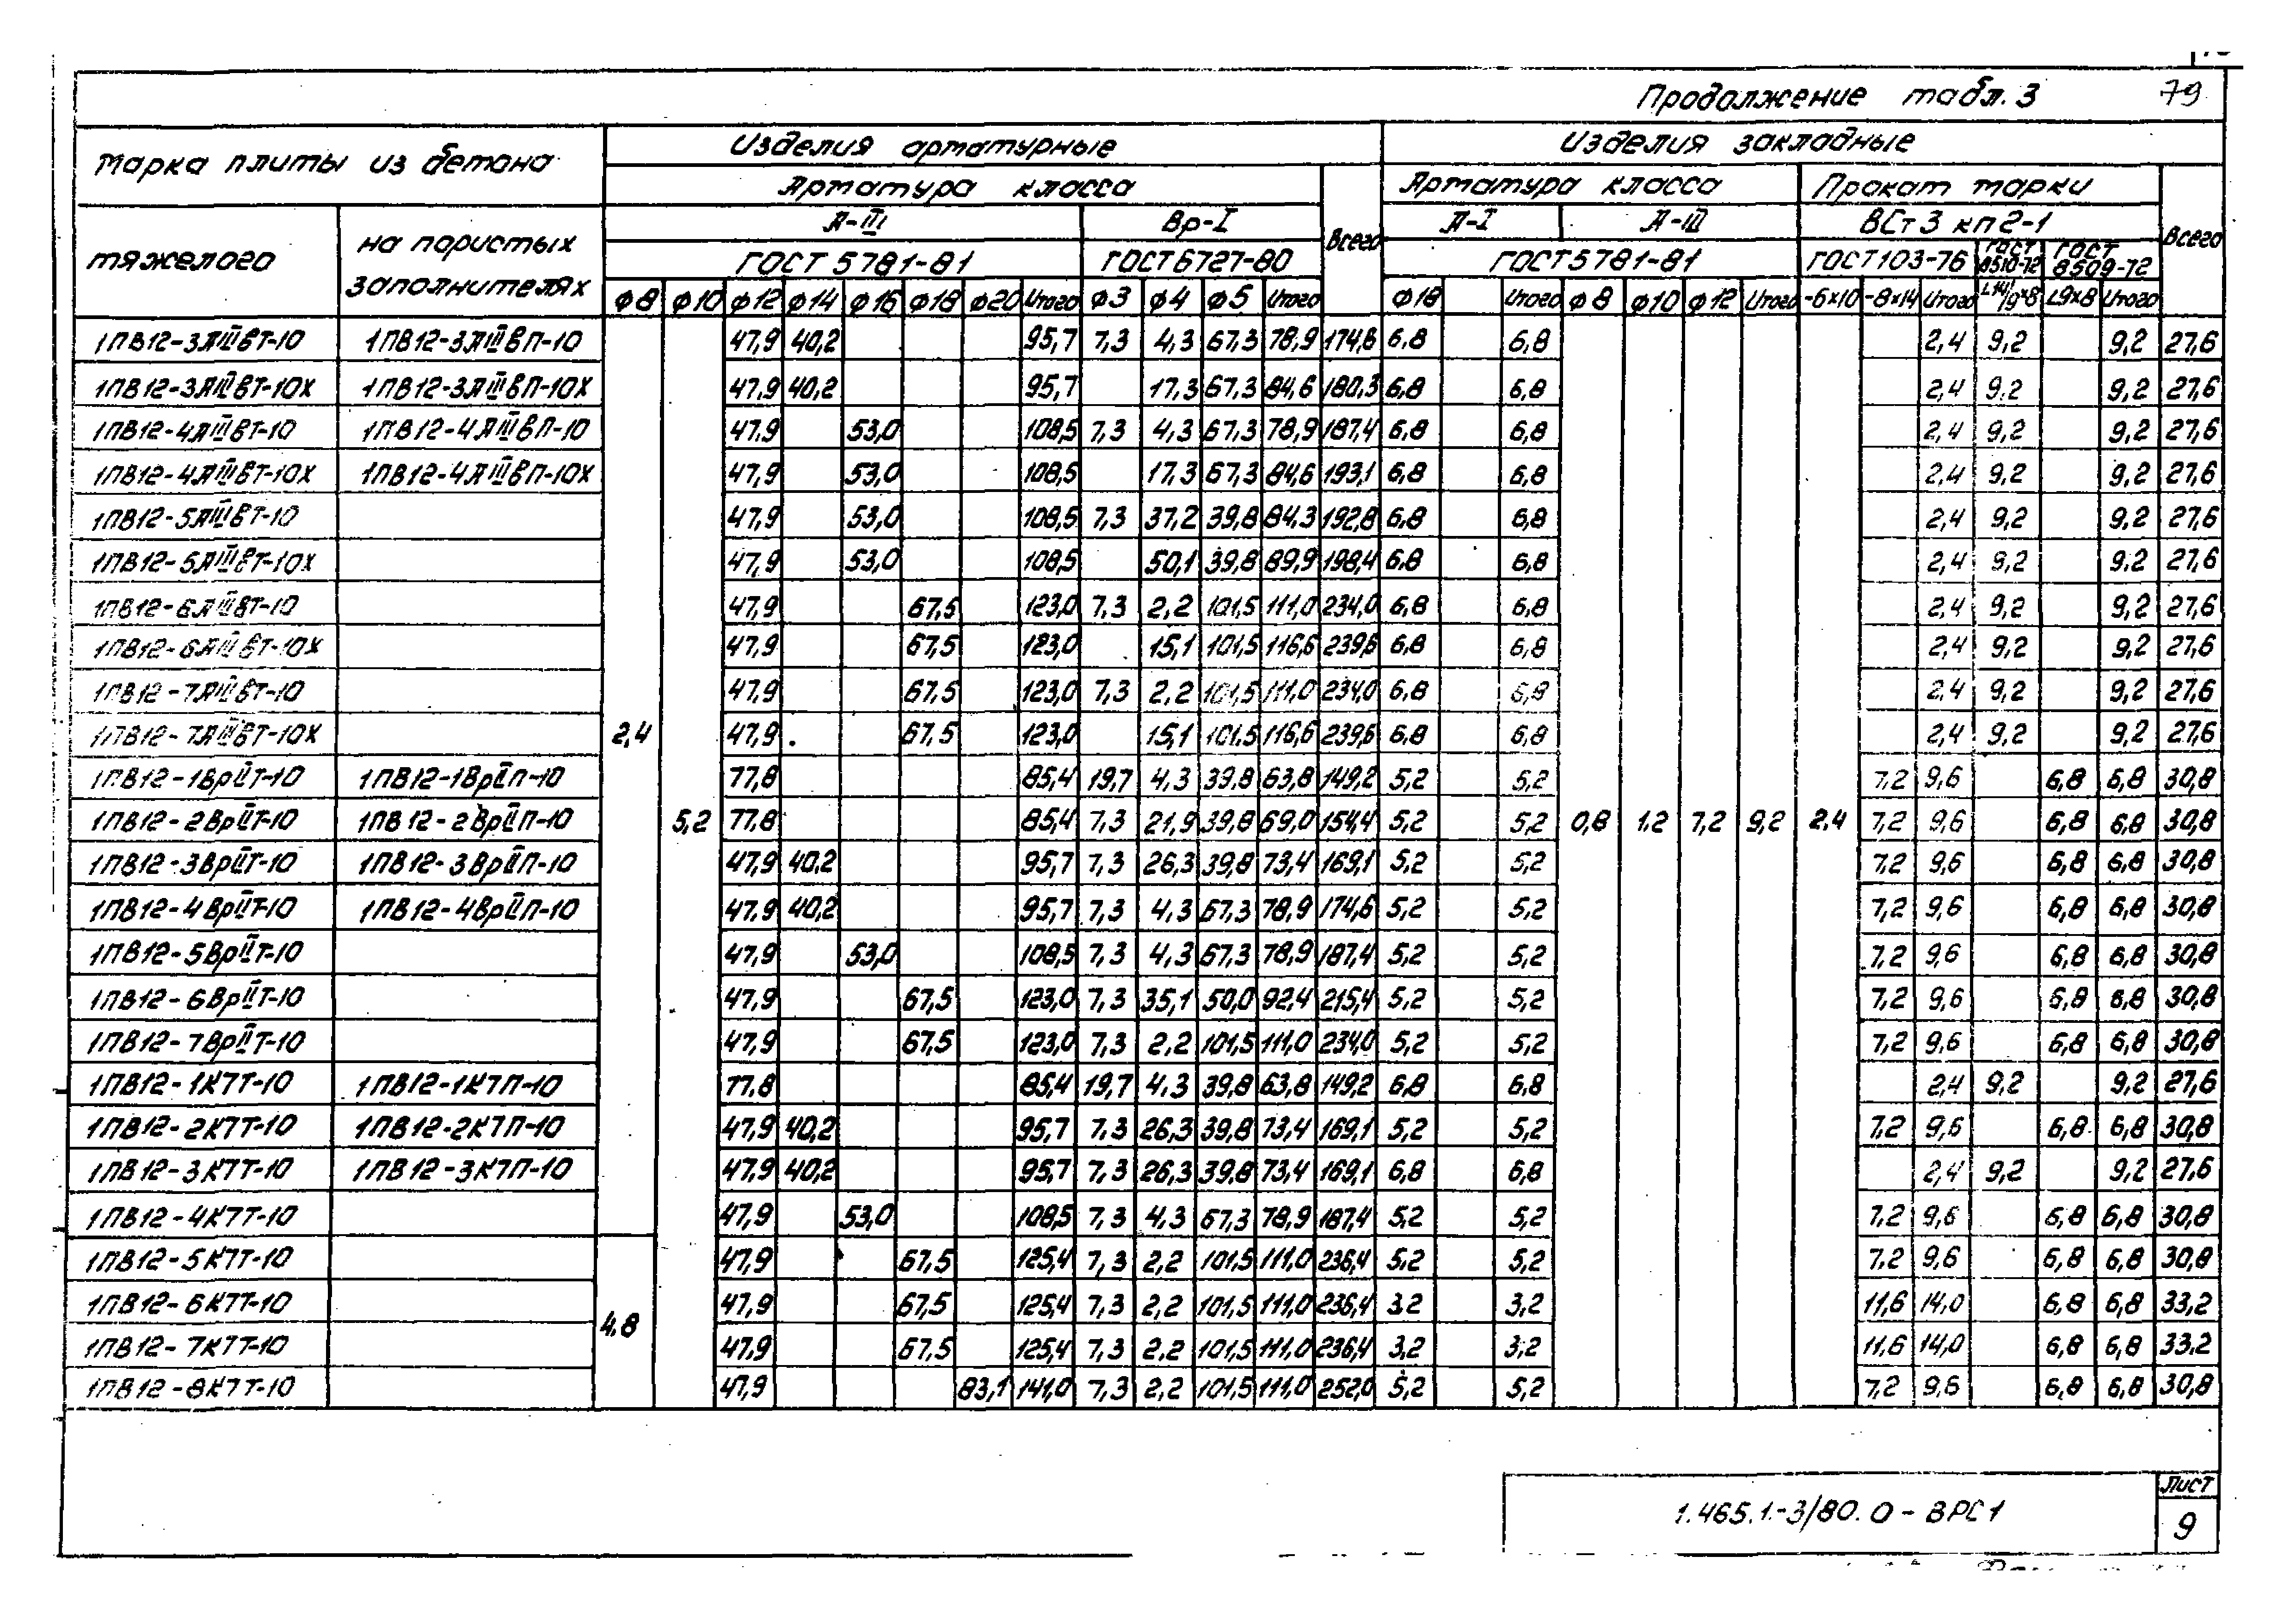 Продолжение табл. 3 79
Марка плиты из бетона Изделия арматурные Изделия закладные
Арматура класса Всего Арматура класса Прокат марки Всего
тяжелого на пористых заполнителях А-III Вр-I А-I А-III ВСт3 кп2-1
ГОСТ 5781-81 ГОСТ 6727-80 ГОСТ 5781-81 ГОСТ 103-76 ГОСТ 8510-72 ГОСТ 8509-72
ф8 ф10 ф12 ф14 ф16 ф18 ф20 Итого ф3 ф4 ф5 Итого ф18 Итого ф8 ф10 ф12 Итого -6×10 -8×14 Итого L14/9×8 L9×8 Итого
1ПВ12-3АIIIвТ-10 1ПВ12-3АIIIвП-10 47,9 40,2 95,7 7,3 4,3 67,3 78,9 174,6 6,8 6,8 2,4 9,2 9,2 27,6
1ПВ12-3АIIIвТ-10Х 1ПВ12-3АIIIвП-10Х 47,9 40,2 95,7 17,3 67,3 84,6 180,3 6,8 6,8 2,4 9,2 9,2 27,6
1ПВ12-4АIIIвТ-10 1ПВ12-4АIIIвП-10 47,9 53,0 108,5 7,3 4,3 67,3 78,9 187,4 6,8 6,8 2,4 9,2 9,2 27,6
1ПВ12-4АIIIвТ-10Х 1ПВ12-4АIIIвП-10Х 47,9 53,0 108,5 17,3 67,3 84,6 193,1 6,8 6,8 2,4 9,2 9,2 27,6
1ПВ12-5АIIIвТ-10 47,9 53,0 108,5 7,3 37,2 39,8 84,3 192,8 6,8 6,8 2,4 9,2 9,2 27,6
1ПВ12-5АIIIвТ-10Х 47,9 53,0 108,5 50,1 39,8 89,9 198,4 6,8 6,8 2,4 9,2 9,2 27,6
1ПВ12-6АIIIвТ-10 47,9 67,5 123,0 7,3 2,2 101,5 111,0 234,0 6,8 6,8 2,4 9,2 9,2 27,6
1ПВ12-6АIIIвТ-10Х 47,9 67,5 123,0 15,1 101,5 116,6 239,6 6,8 6,8 2,4 9,2 9,2 27,6
1ПВ12-7АIIIвТ-10 47,9 67,5 123,0 7,3 2,2 101,5 111,0 234,0 6,8 6,8 2,4 9,2 9,2 27,6
1ПВ12-7АIIIвТ-10Х 2,4 47,9 67,5 123,0 15,1 101,5 116,6 239,6 6,8 6,8 2,4 9,2 9,2 27,6
1ПВ12-1ВрIIТ-10 1ПВ12-1ВрIIП-10 77,8 85,4 19,7 4,3 39,8 63,8 149,2 5,2 5,2 7,2 9,6 6,8 6,8 30,8
1ПВ12-2ВрIIТ-10 1ПВ12-2ВрIIП-10 5,2 77,8 85,4 7,3 21,9 39,8 69,0 154,4 5,2 5,2 0,8 1,2 7,2 9,2 2,4 7,2 9,6 6,8 6,8 30,8
1ПВ12-3ВрIIТ-10 1ПВ12-3ВрIIП-10 47,9 40,2 95,7 7,3 26,3 39,8 73,4 169,1 5,2 5,2 7,2 9,6 6,8 6,8 30,8
1ПВ12-4ВрIIТ-10 1ПВ12-4ВрIIП-10 47,9 40,2 95,7 7,3 4,3 67,3 78,9 174,6 5,2 5,2 7,2 9,6 6,8 6,8 30,8
1ПВ12-5ВрIIТ-10 47,9 53,0 108,5 7,3 4,3 67,3 78,9 187,4 5,2 5,2 7,2 9,6 6,8 6,8 30,8
1ПВ12-6ВрIIТ-10 47,9 67,5 123,0 7,3 35,1 50,0 92,4 215,4 5,2 5,2 7,2 9,6 6,8 6,8 30,8
1ПВ12-7ВрIIТ-10 47,9 67,5 123,0 7,3 2,2 101,5 111,0 234,0 5,2 5,2 7,2 9,6 6,8 6,8 30,8
1ПВ12-1К7Т-10 1ПВ12-1К7П-10 77,8 85,4 19,7 4,3 39,8 63,8 149,2 6,8 6,8 2,4 9,2 9,2 27,6
1ПВ12-2К7Т-10 1ПВ12-2К7П-10 47,9 40,2 95,7 7,3 26,3 39,8 73,4 169,1 5,2 5,2 7,2 9,6 6,8 6,8 30,8
1ПВ12-3К7Т-10 1ПВ12-3К7П-10 47,9 40,2 95,7 7,3 26,3 39,8 73,4 169,1 6,8 6,8 2,4 9,2 9,2 27,6
1ПВ12-4К7Т-10 47,9 53,0 108,5 7,3 4,3 67,3 78,9 187,4 5,2 5,2 7,2 9,6 6,8 6,8 30,8
1ПВ12-5К7Т-10 47,9 67,5 125,4 7,3 2,2 101,5 111,0 236,4 5,2 5,2 7,2 9,6 6,8 6,8 30,8
1ПВ12-6К7Т-10 4,8 47,9 67,5 125,4 7,3 2,2 101,5 111,0 236,4 3,2 3,2 11,6 14,0 6,8 6,8 33,2
1ПВ12-7К7Т-10 47,9 67,5 125,4 7,3 2,2 101,5 111,0 236,4 3,2 3,2 11,6 14,0 6,8 6,8 33,2
1ПВ12-8К7Т-10 47,9 83,1 141,0 7,3 2,2 101,5 111,0 252,0 5,2 5,2 7,2 9,6 6,8 6,8 30,8
1.465.1-3/80.0-ВРС1 Лист
9